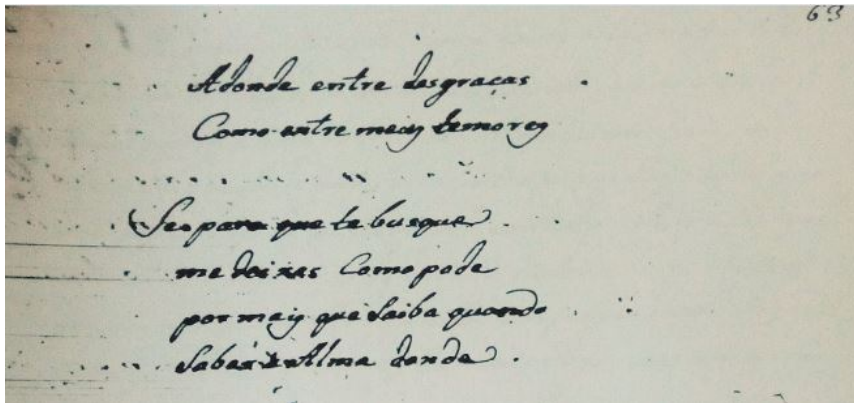 63
Adonde entre desgraças
Como entre meus temores
Se para que te busque
me deixas Como pode
por mais que saiba quando
saber a Alma donde